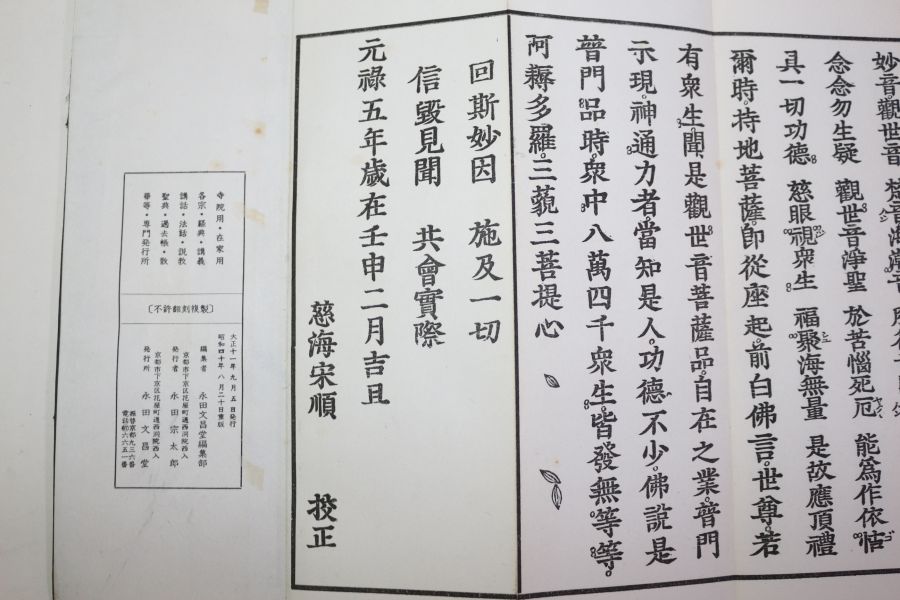 妙音觀世音 梵音海潮音
念念勿生疑 觀世音淨聖 於苦惱死厄 能爲作依怙
具一切功德 慈眼視衆生 福聚海無量 是故應頂禮
爾時持地菩薩卽從座起前白佛言世尊若
有衆生聞是觀世音菩薩品自在之業普門
示現神通力者當知是人功德不少佛說是
普門品時衆中八萬四千衆生皆發無等等
阿耨多羅三藐三菩提心
回斯妙因 施及一切
信毀見聞 共會實際
元祿五年歲在壬申二月吉旦
慈海宋順 挍正
寺院用・在家用
各宗・経典・講義
講話・法話・説教
聖典・過去帳・敎
華等・専門発行所
〔不許飜刻複製〕
大正十一年九月五日発行
昭和四十年八月二十日重版
編集者 永田文昌堂編集部
京都市下京区花屋町通西洞院西入
発行者 永田宗太郎
京都市下京区花屋町通西洞院西入
発行所 永田文昌堂
振替京都九三六番
電話㉟六六五一番